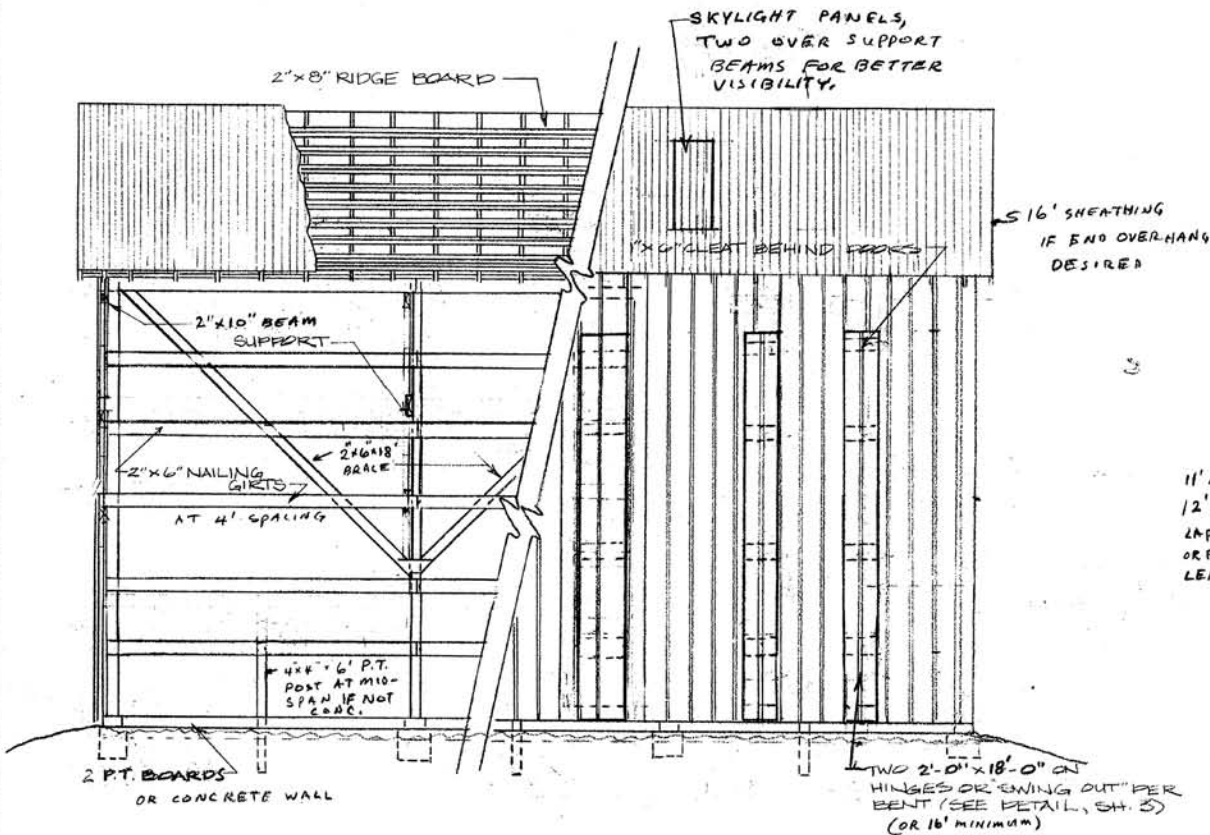 SKYLIGHT PANELS,
TWO OVER SUPPORT
BEAMS FOR BETTER
VISIBILITY.
2"x8" RIDGE BOARD
16' SHEATHING
IF END OVERHANG
DESIRED
1"x6" CLEAT BEHIND DOORS
2"x10" BEAM
SUPPORT
2"x6"x18'
BRACE
2"x6" NAILING
GIRTS
AT 4' SPACING
11'
12'
4"x4" x 6' P.T.
POST AT MID-
SPAN IF NOT
CONC.
2 P.T. BOARDS
OR CONCRETE WALL
TWO 2'-0" x 18'-0" ON
HINGES OR "SWING OUT" PER
BENT (SEE DETAIL, SH. 3)
(OR 16' MINIMUM)